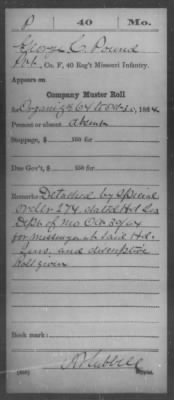 P 40 Mo.
George C. Pound
Pvt., Co. F, 40 Reg't Missouri Infantry.
Appears on
Company Muster Roll
for Organiz'n to Oct 31, 1864.
Present or absent Absent
Stoppage, $ 100 for
Due Gov't, $ 100 for
Remarks: Detailed by Special
Order 274 dated Hd Qrs
Dept of Mo Oct 30/64
for messenger at said Hd.
Qrs. and descriptive
roll given
Book mark:
(358) Copyist.